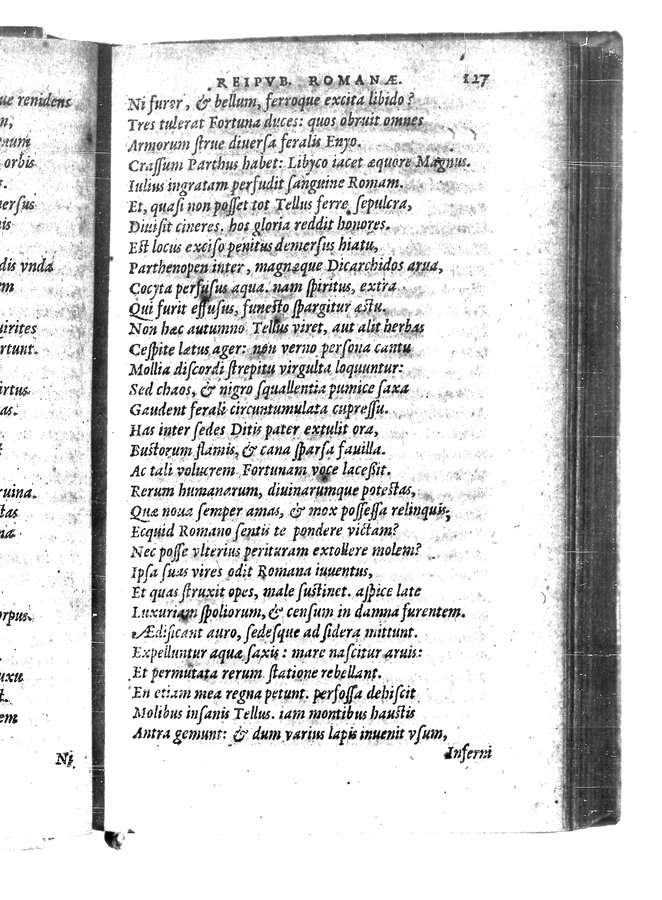 ue renidens
m,
naum
orbis
s.
uersus
nis
dis vnda
em
uirites
rtunt.
irtus
as.
ruina.
tas
na
orpus.
uxu
t.
em
Ni
REIPVB. ROMANÆ. 127
Ni furor, & bellum, ferroque excita libido?
Tres tulerat Fortuna duces: quos obruit omnes
Armorum ſtrue diuerſa feralis Enyo.
Craſſum Parthus habet: Libyco iacet æquore Magnus.
Iulius ingratam perfudit ſanguine Romam.
Et, quaſi non poſſet tot Tellus ferre ſepulcra,
Diuiſit cineres. hos gloria reddit honores.
Eſt locus exciſo penitus demerſus hiatu,
Parthenopen inter, magnæque Dicarchidos arua,
Cocyta perfuſus aqua. nam ſpiritus, extra
Qui furit effuſus, funeſto ſpargitur æſtu.
Non hæc autumno Tellus viret, aut alit herbas
Ceſpite lætus ager: non verno perſona cantu
Mollia diſcordi ſtrepitu virgulta loquuntur:
Sed chaos, & nigro ſquallentia pumice ſaxa
Gaudent ferali circuntumulata cupreſſu.
Has inter ſedes Ditis pater extulit ora,
Buſtorum flamis, & cana ſparſa fauilla.
Ac tali volucrem Fortunam voce laceßit.
Rerum humanarum, diuinarumque poteſtas,
Quæ noua ſemper amas, & mox poſſeſſa relinquis,
Ecquid Romano ſentis te pondere victam?
Nec poſſe vlterius perituram extollere molem?
Ipſa ſuas vires odit Romana iuuentus,
Et quas ſtruxit opes, male ſuſtinet. aſpice late
Luxuriam ſpoliorum, & cenſum in damna furentem.
Ædificant auro, ſedeſque ad ſidera mittunt.
Expelluntur aquæ ſaxis: mare naſcitur aruis:
Et permutata rerum ſtatione rebellant.
En etiam mea regna petunt. perfoſſa dehiſcit
Molibus inſanis Tellus. iam montibus hauſtis
Antra gemunt: & dum varius lapis inuenit vſum,
Inferni